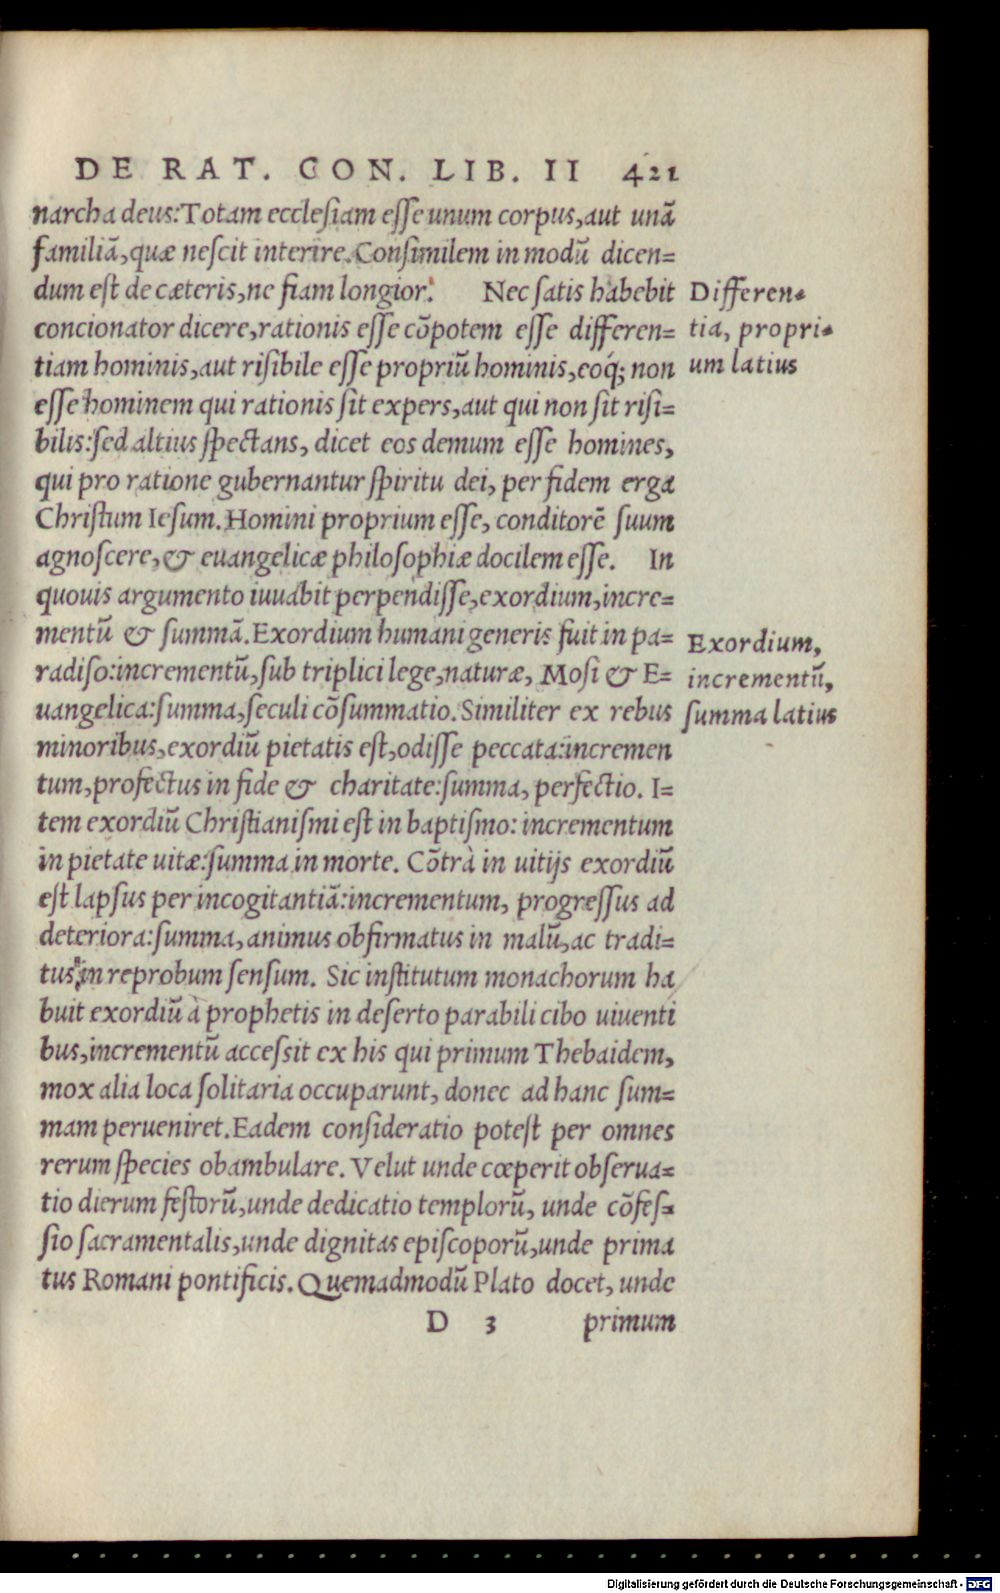 DE RAT. CON. LIB. II 421
narcha deus: Totam ecclesiam esse unum corpus, aut unã
familiã, quæ nescit interire. Consimilem in modũ dicen=
dum est de cæteris, ne fiam longior. Nec satis habebit
Differen=
concionator dicere, rationis esse cõpotem esse differen=
tia, propri=
tiam hominis, aut risibile esse propriũ hominis, eóq; non
um latius
esse hominem qui rationis sit expers, aut qui non sit risi=
bilis: sed altius spectans, dicet eos demum esse homines,
qui pro ratione gubernantur spiritu dei, per fidem erga
Christum Iesum. Homini proprium esse, conditorẽ suum
agnoscere, & euangelicæ philosophiæ docilem esse. In
quouis argumento iuuabit perpendisse, exordium, incre=
mentũ & summã. Exordium humani generis fuit in pa=
Exordium,
radiso: incrementũ, sub triplici lege, naturæ, Mosi & E=
incrementũ,
uangelica: summa, seculi cõsummatio. Similiter ex rebus
summa latius
minoribus, exordiũ pietatis est, odisse peccata: incremen
tum, profectus in fide & charitate: summa, perfectio. I=
tem exordiũ Christianismi est in baptismo: incrementum
in pietate uitæ: summa in morte. Cõtrà in uitijs exordiũ
est lapsus per incogitantiã: incrementum, progressus ad
deteriora: summa, animus obfirmatus in malũ, ac tradi=
tus in reprobum sensum. Sic institutum monachorum ha
buit exordiũ à prophetis in deserto parabili cibo uiuenti
bus, incrementũ accessit ex his qui primum Thebaidem,
mox alia loca solitaria occuparunt, donec ad hanc sum=
mam perueniret. Eadem consideratio potest per omnes
rerum species obambulare. Velut unde cœperit obserua=
tio dierum festorũ, unde dedicatio templorũ, unde cõfes=
sio sacramentalis, unde dignitas episcoporũ, unde prima
tus Romani pontificis. Quemadmodũ Plato docet, unde
D 3 primum
Digitalisierung gefördert durch die Deutsche Forschungsgemeinschaft - DFG